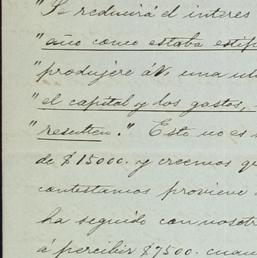 "Se reducirá el interes
"año como estaba estip
"produjere á N. una ut
"el capital y los gastos,
"resulten." Esto no es
de $15000. y creemos qu
contestamos proviene
ha seguido con nosotr
á percibir $7500. cuan